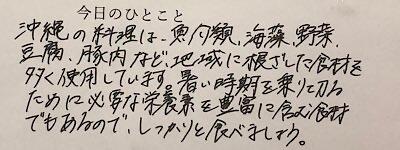 今日のひとこと
沖縄の料理は、魚介類、海藻、野菜、
豆腐、豚肉など、地域に根ざした食材を
多く使用しています。暑い時期を乗り切る
ために必要な栄養素を豊富に含む食材
でもあるので、しっかりと食べましょう。